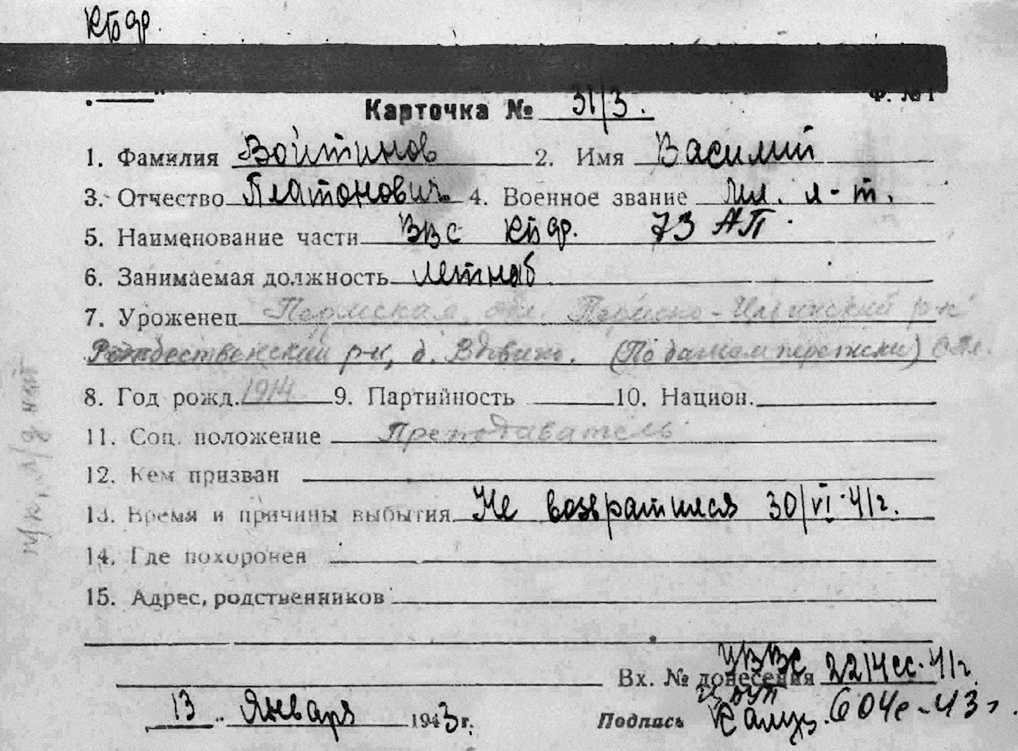 КБФ.
Ф. №1
Карточка № 31/3.
1. Фамилия Войтинов 2. Имя Василий
3. Отчество Платонович 4. Военное звание мл. л-т.
5. Наименование части ВВС КБФ. 73 АП.
6. Занимаемая должность летнаб
7. Уроженец Пермская обл. Пермско-Ильинский р-н
Рождественский р-н, д. Вдовино. (По данным переписки)
8. Год рожд. 1914 9. Партийность 10. Национ.
11. Соц. положение Преподаватель
12. Кем призван
13. Время и причины выбытия Не возвратился 30/VI-41г.
14. Где похоронен
15. Адрес, родственников
Вх. № донесения УВВС 2214сс-41г.
13 Января 1943г. Подпись 604с-43г